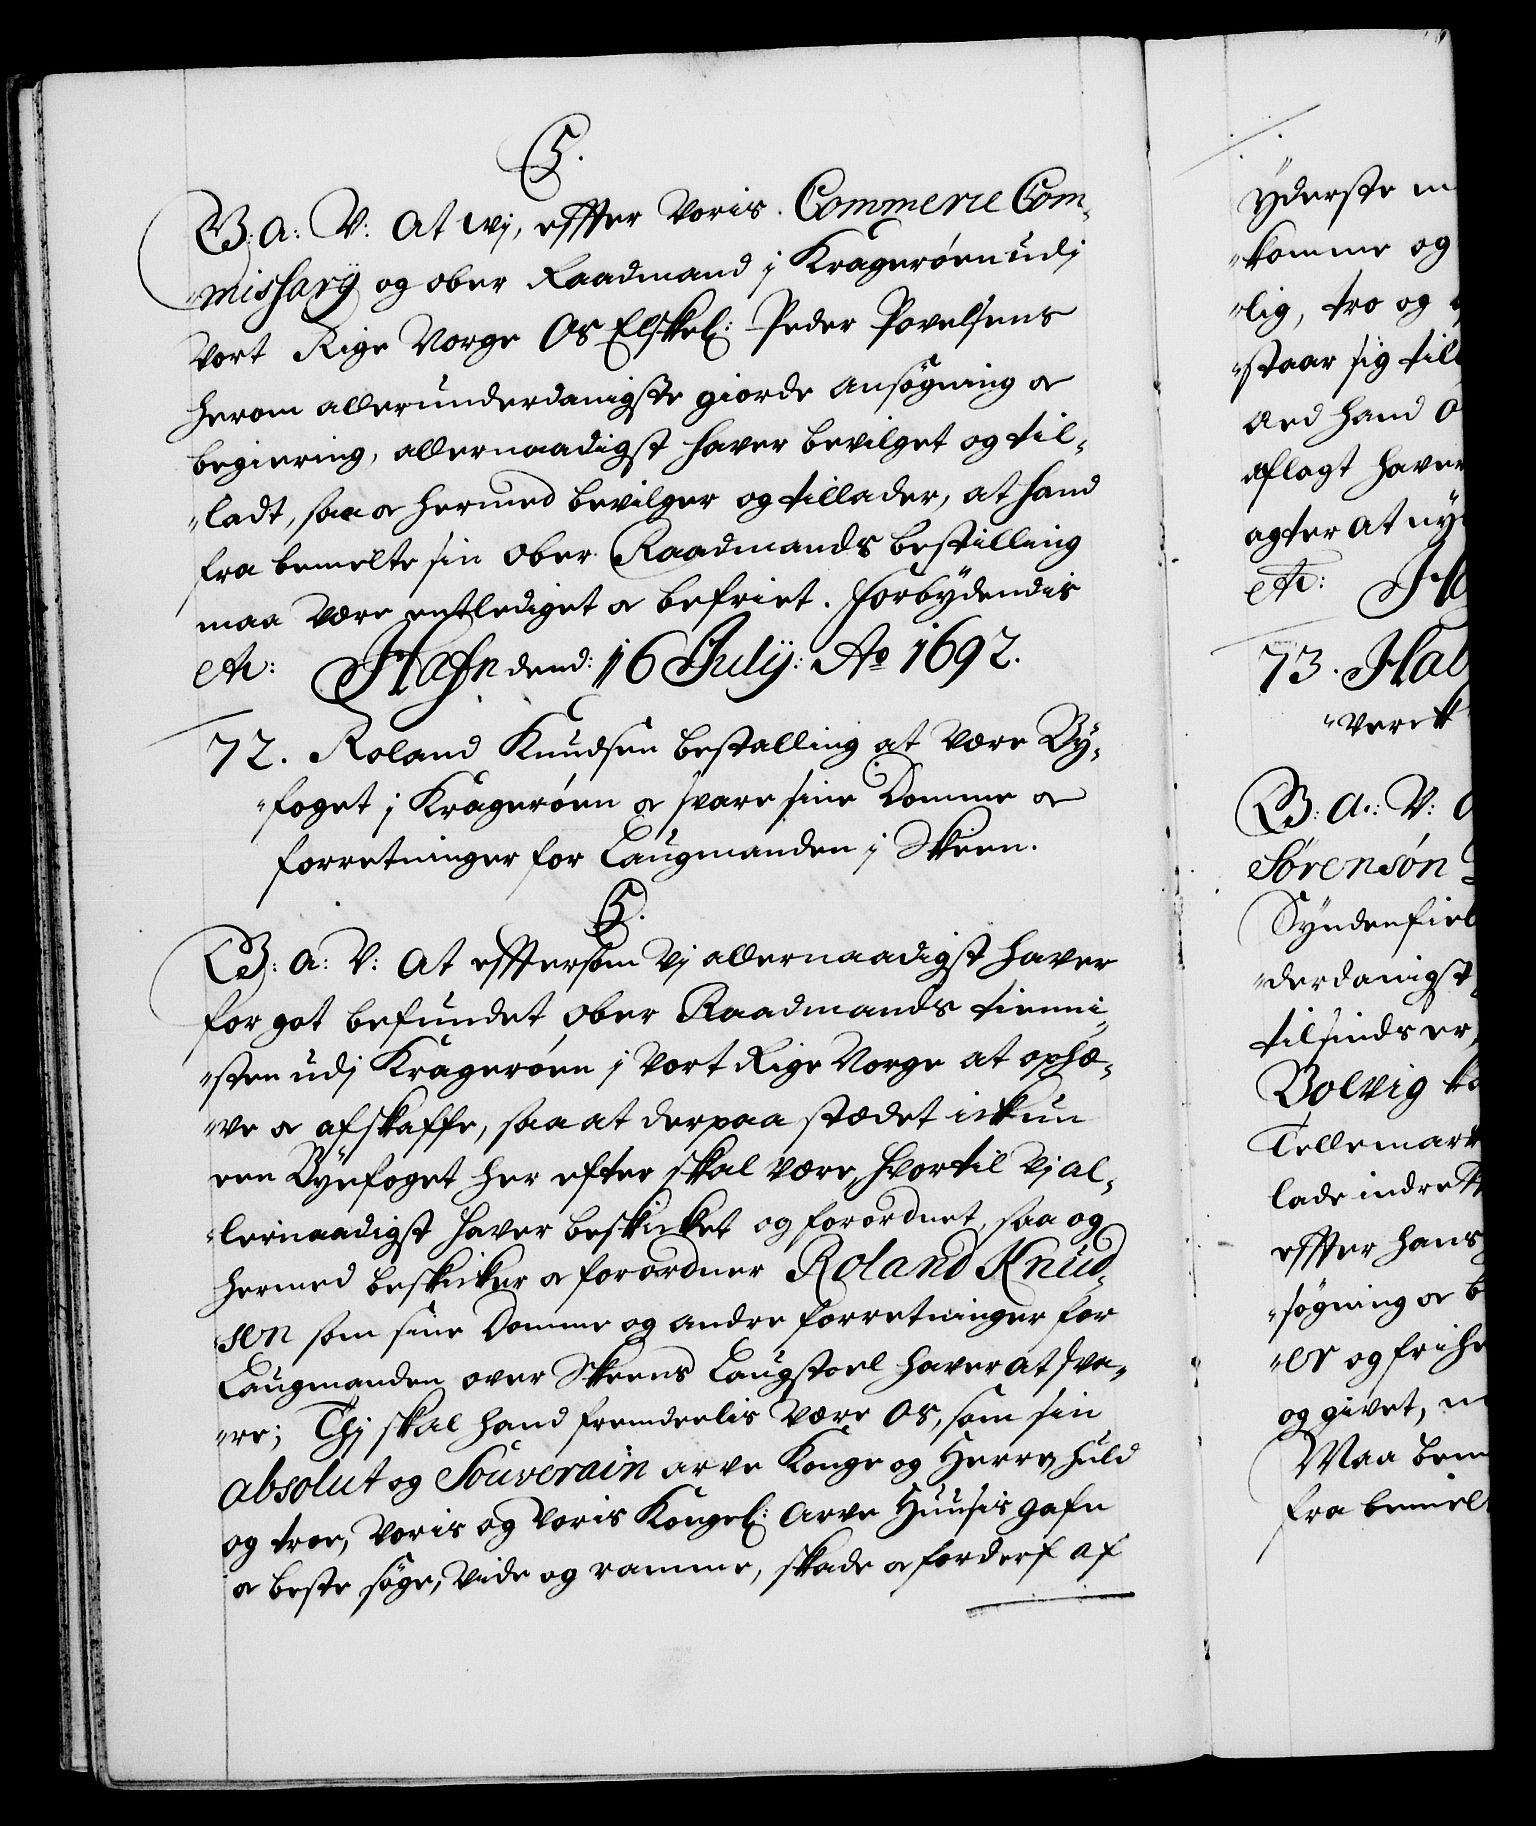 C5.
G: a: V: at wj, effter voris Commerce Com-
missarÿ og ober Raadmand j Kragerøen udj
vort Rige Norge Os Elskel: Peder Povelsens
herom allerunderdanigste giorde ansøgning oc
begiering, allernaadigst haver bevilget og til-
ladt, saa oc hermed bevilger og tillader, at hand
fra bemelte sin Ober Raadmands bestilling
maa være entlediget oc befriet. Forbydendis
etc: Hafn dend: 16 Julÿ: Ao 1692.
72. Roland Knudsen bestalling at være By-
foget j Kragerøen oc svare sine Domme oc
forretninger for Laugmanden j Skeen.
C5.
G: a: V: at efftersom Vj allernaadigst haver
for got befundet Ober Raadmands tienni-
sten udj Kragerøen j vort Rige Norge at ophæ-
ve oc afskaffe, saa at derpaa stædet ickun
een Byefoget her efter skal være, hvortil vj al-
lernaadigst haver beskicket og forordnet, saa og
hermed beskicker oc forordner Roland Knud-
sen som sine Domme og andre forretninger for
Laugmanden over Skeens Laugstoel haver at sva-
re; Thj skal hand fremdeelis være Os, som sin
absolut og Souverain arve Konge og Herre, huld
og troe, voris og voris Kongel: Arve Huusis gafn
oc beste søge, vide og ramme, skade oc forderf af
yderste
komme og
lig, tro og
staar sig till
aed hand
aflagt haver
agter at
etc:
73.
G: a: V:
Sørensøn
Syndenfiel
derdanigst
tilsinds er,
Bolvig
Tellemark
lade indrett
effter hans
søgning oc
er og frihe
og givet,
Maa bem
fra bemel